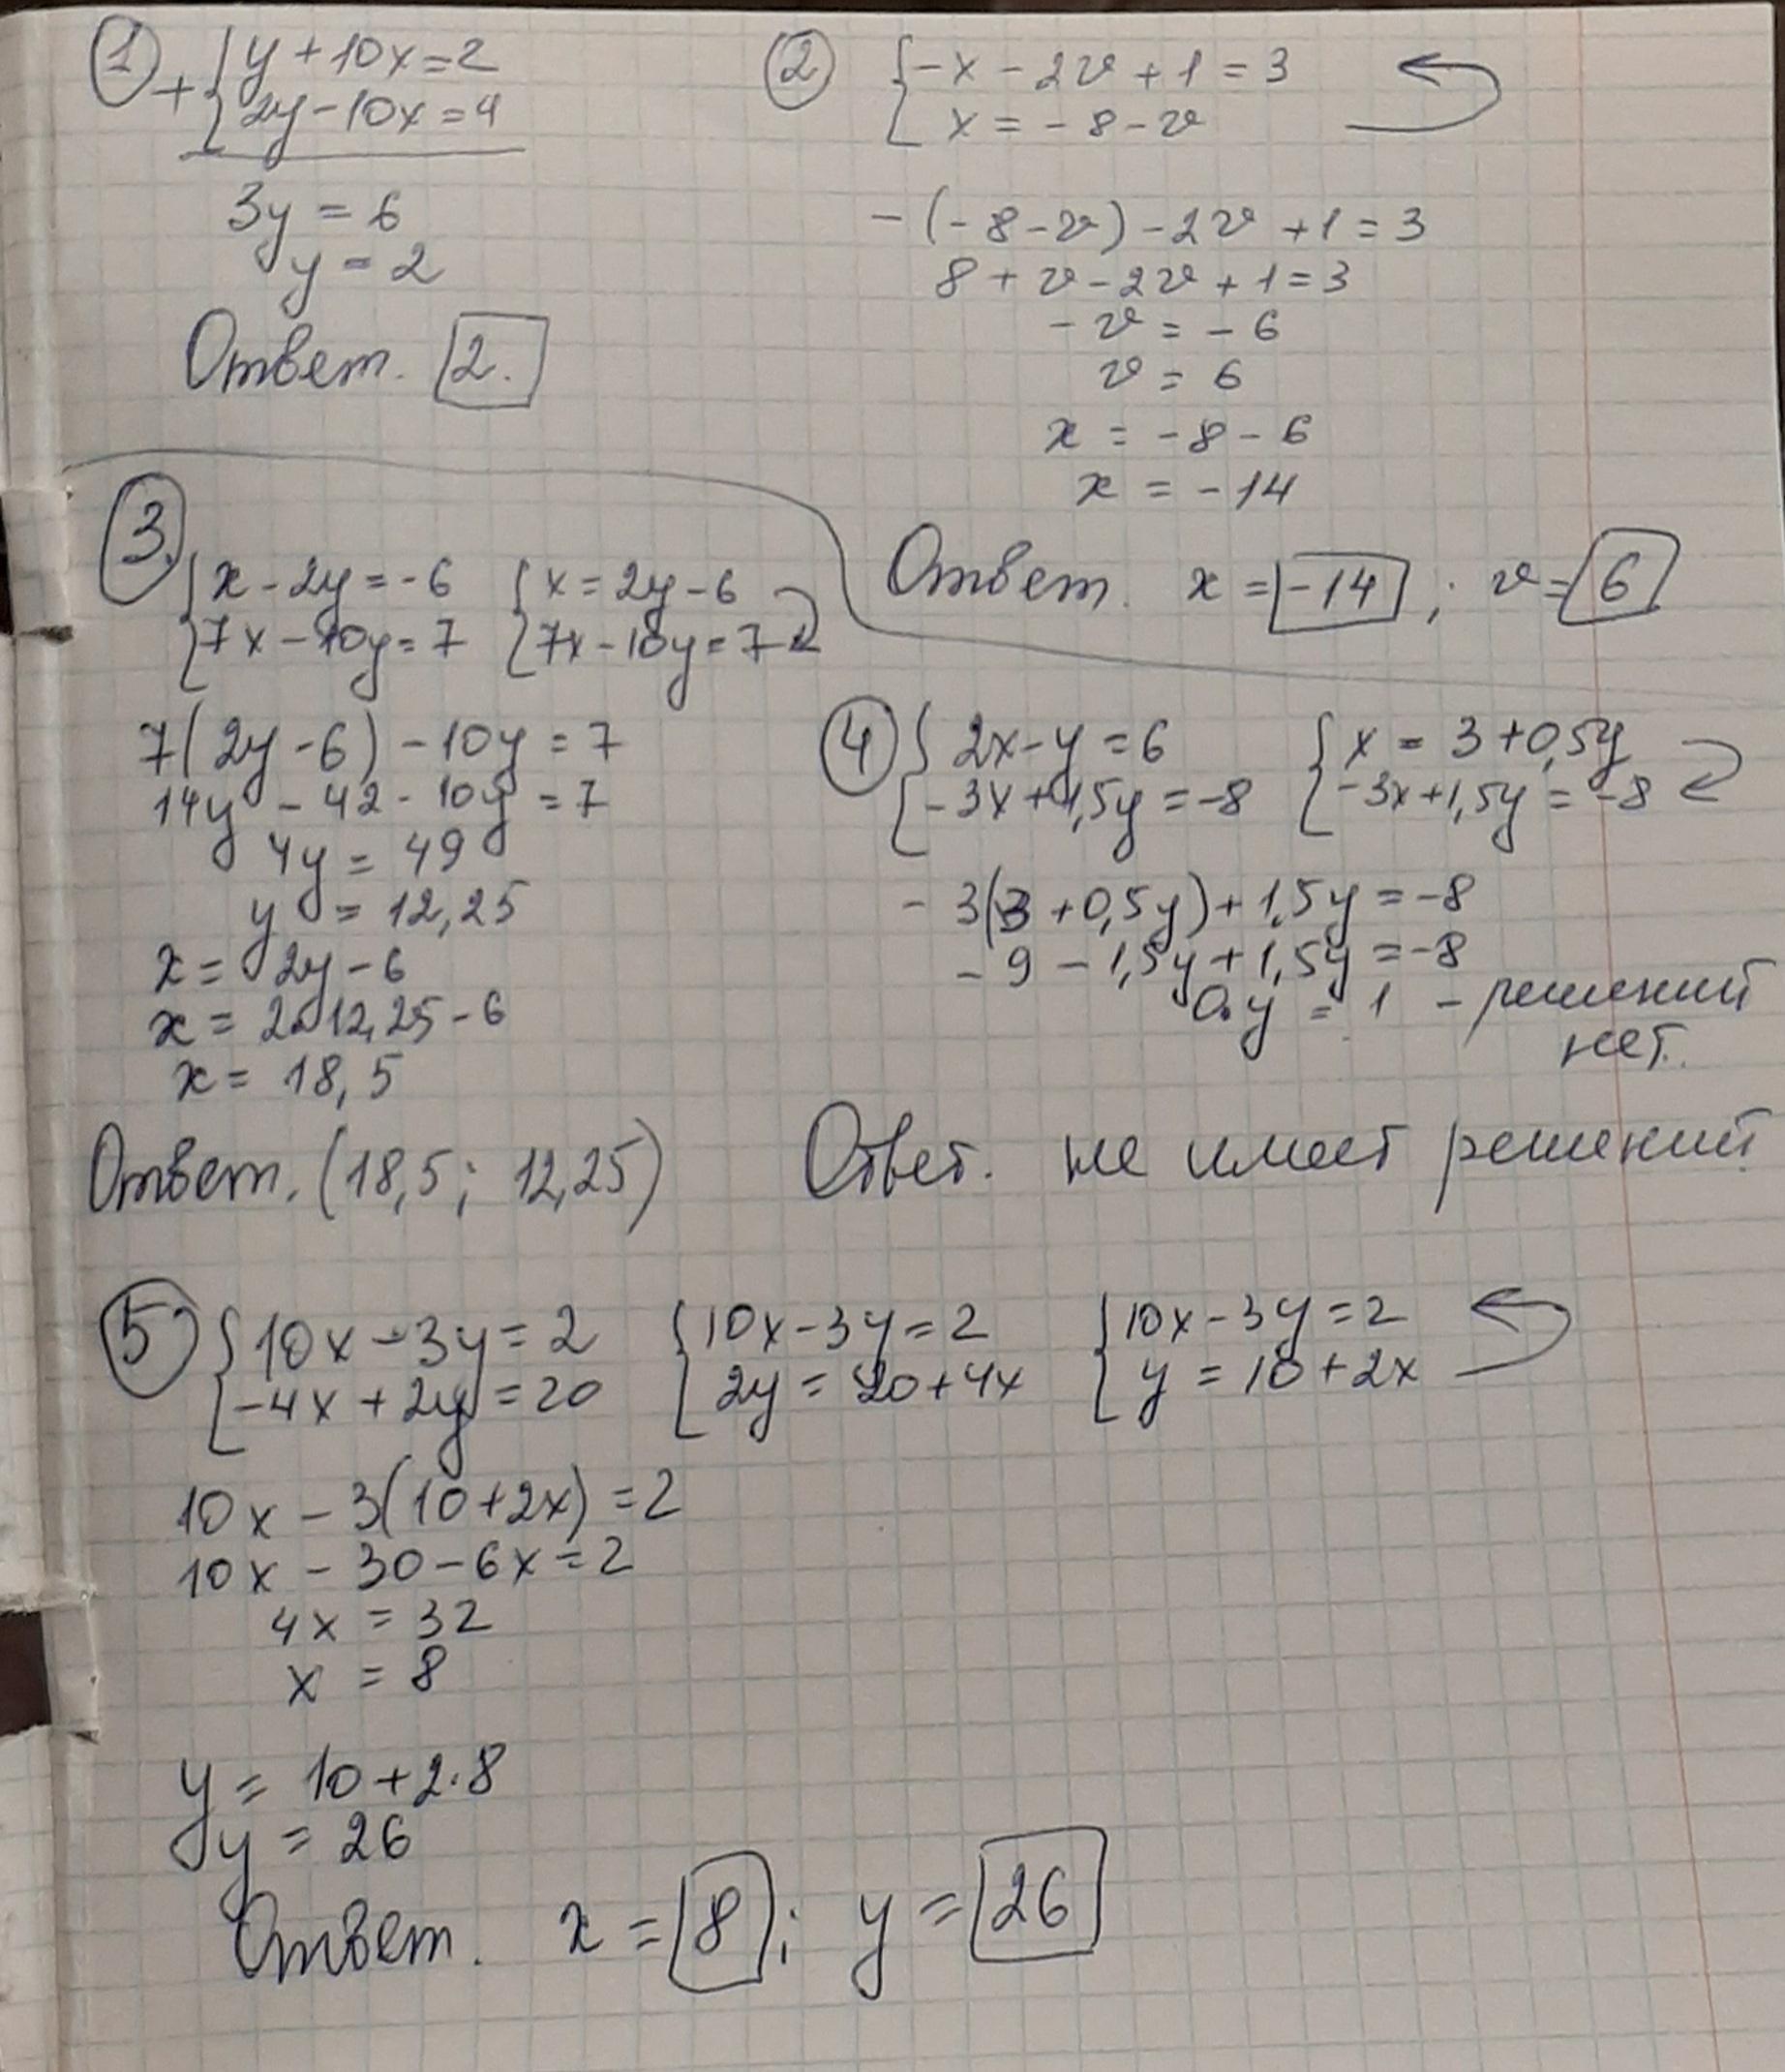 1 + { y + 10x = 2
2y - 10x = 4
3y = 6
y = 2
Ответ. 2.
2 { -x - 2v + 1 = 3
x = -8 - v
-(-8 - v) - 2v + 1 = 3
8 + v - 2v + 1 = 3
-v = -6
v = 6
x = -8 - 6
x = -14
Ответ. x = -14; v = 6
3. { x - 2y = -6 { x = 2y - 6
7x - 10y = 7 7x - 10y = 7
7(2y - 6) - 10y = 7
14y - 42 - 10y = 7
4y = 49
y = 12,25
x = 2y - 6
x = 2·12,25 - 6
x = 18,5
Ответ. (18,5; 12,25)
4 { 2x - y = 6 { x = 3 + 0,5y
-3x + 1,5y = -8 -3x + 1,5y = -8
-3(3 + 0,5y) + 1,5y = -8
-9 - 1,5y + 1,5y = -8
0·y = 1 - решений
нет.
Ответ. не имеет решений.
5 { 10x - 3y = 2 { 10x - 3y = 2 { 10x - 3y = 2
-4x + 2y = 20 2y = 20 + 4x y = 10 + 2x
10x - 3(10 + 2x) = 2
10x - 30 - 6x = 2
4x = 32
x = 8
y = 10 + 2·8
y = 26
Ответ. x = 8; y = 26